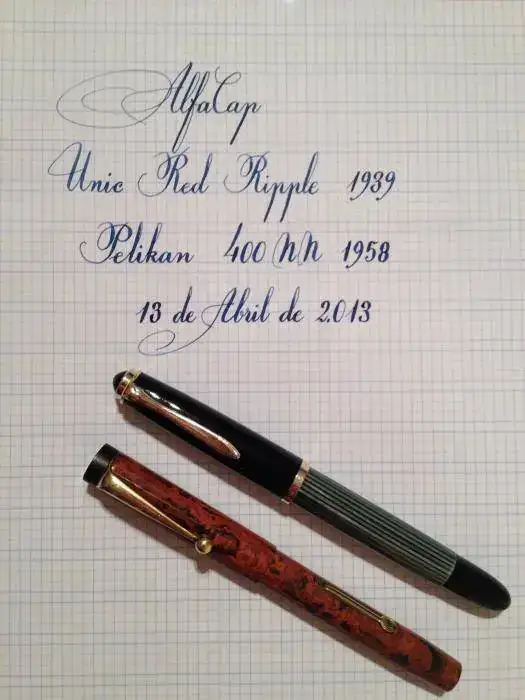 AlfaCap
Unic Red Ripple 1939
Pelikan 400 NN 1958
13 de Abril de 2.013